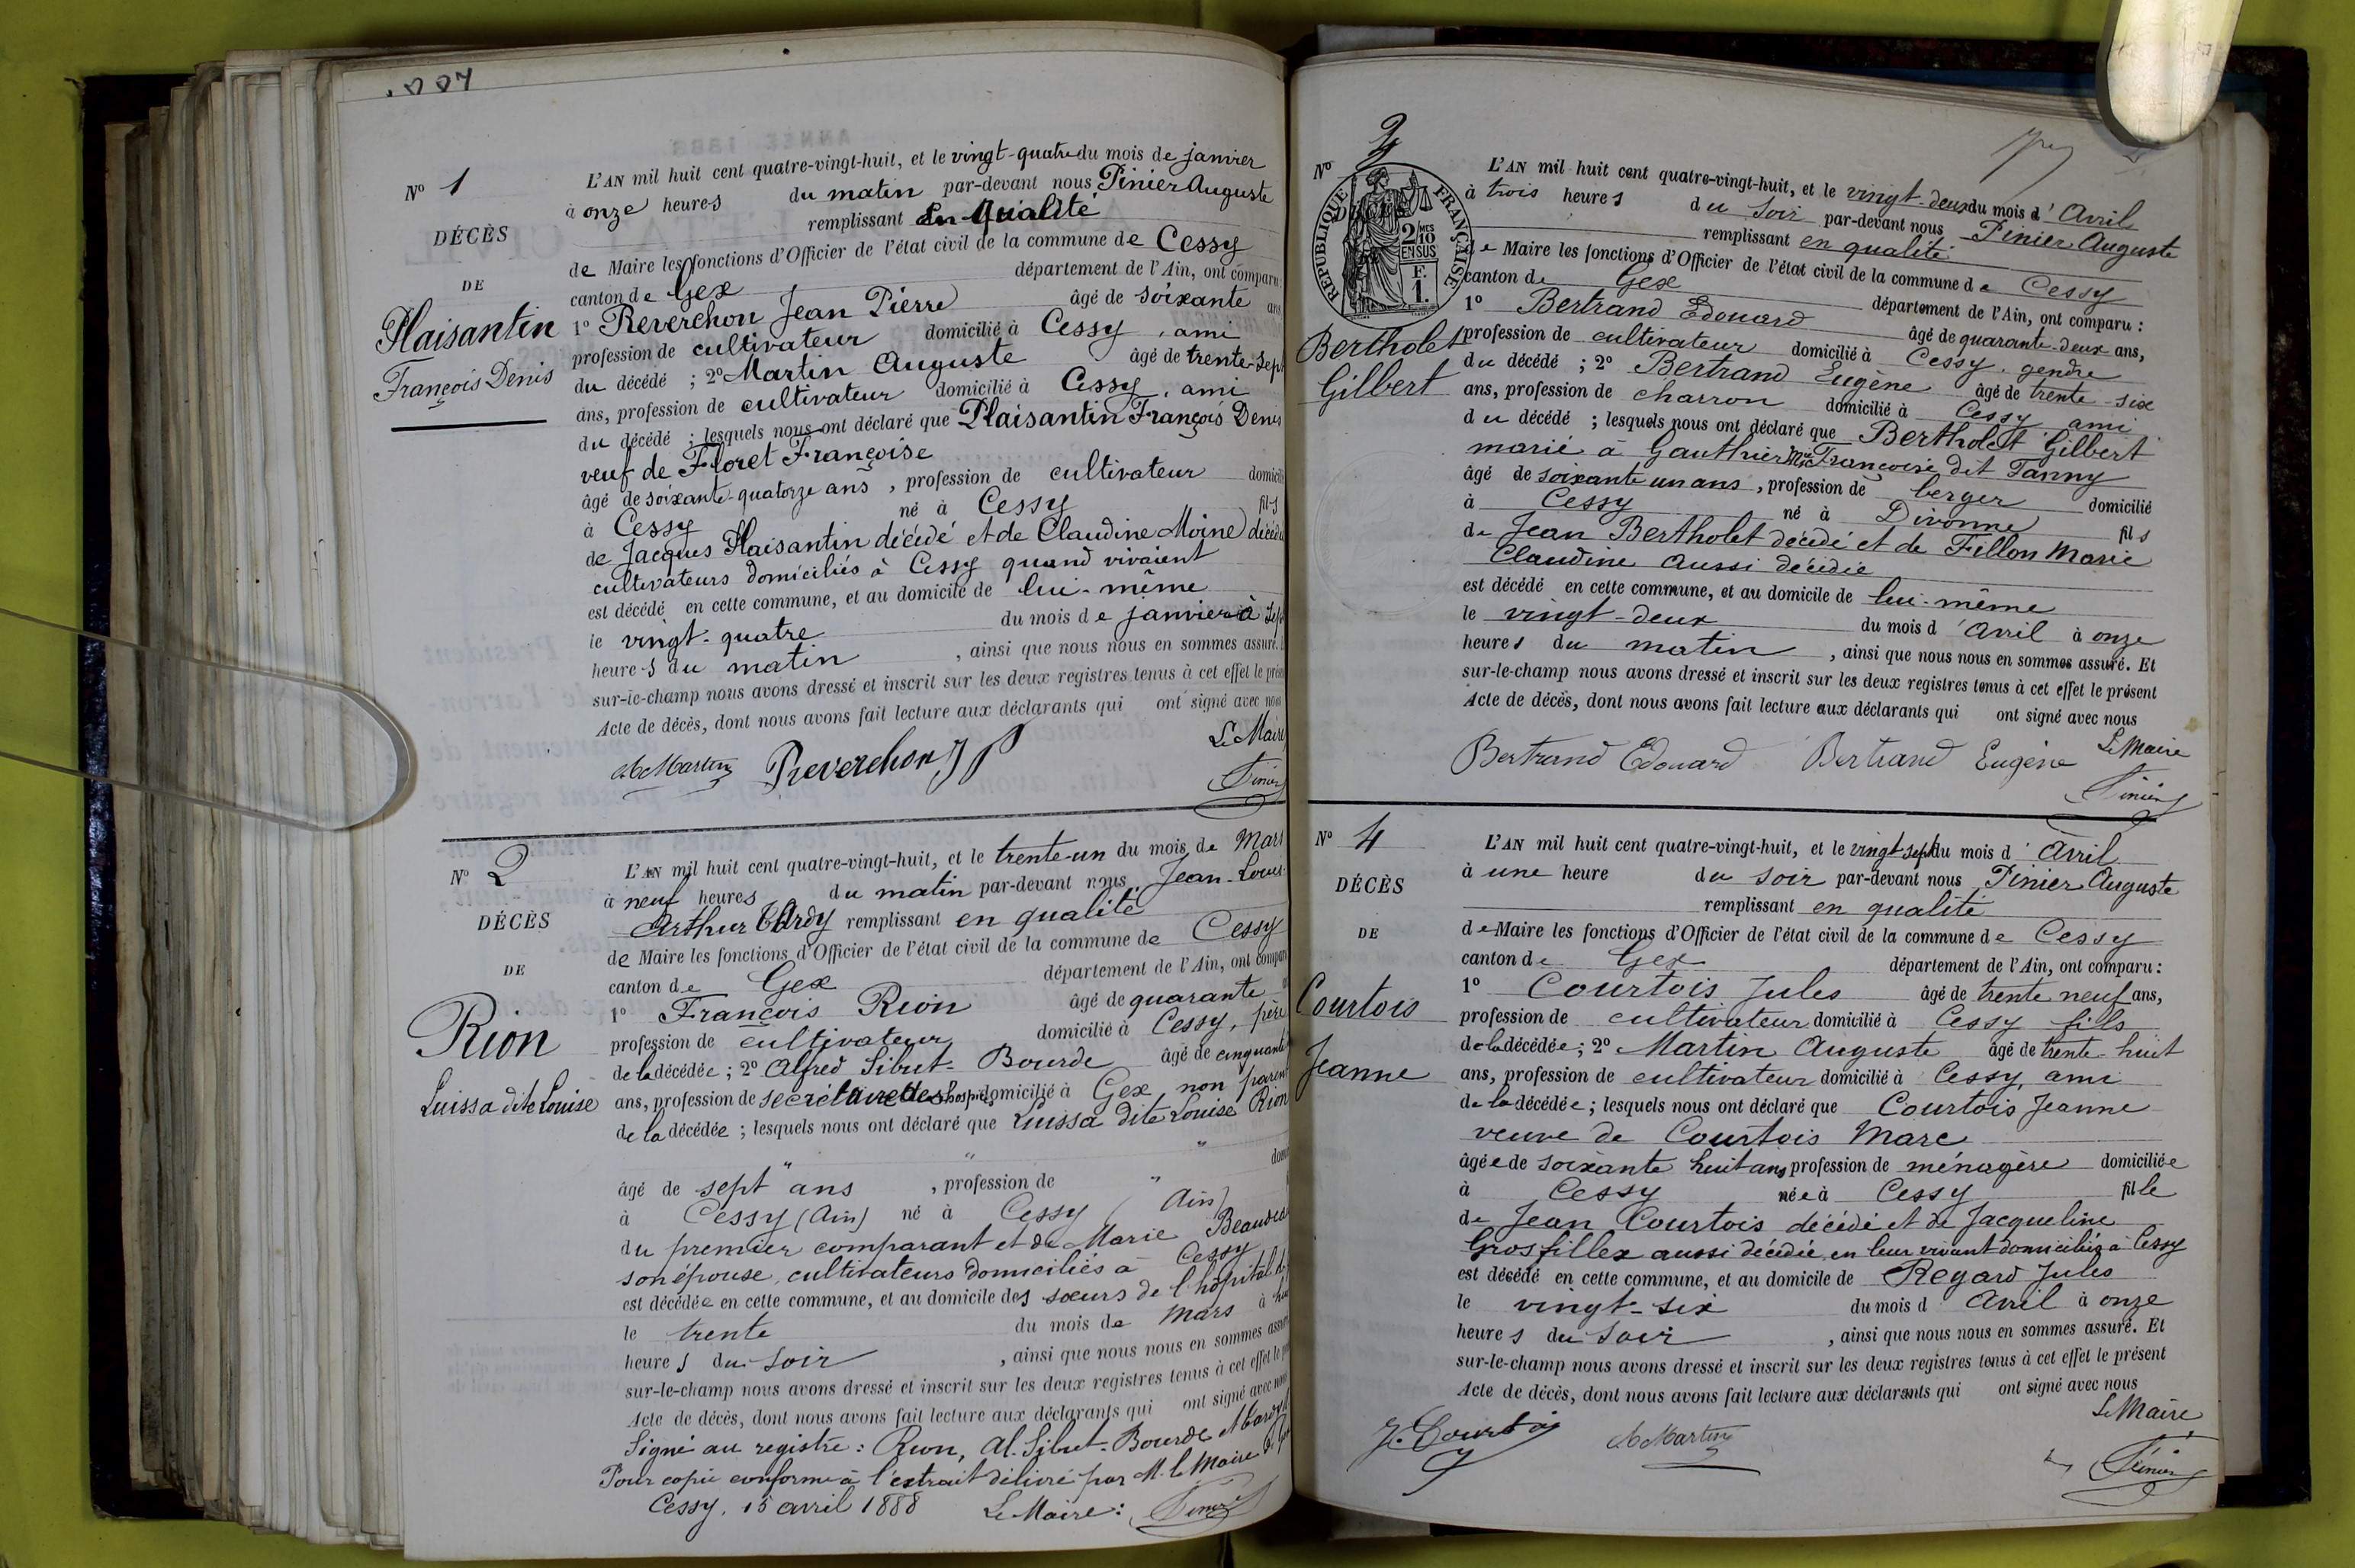 Nº 1
DÉCÈS
DE
Plaisantin
François Denis
L'AN mil huit cent quatre-vingt-huit, et le vingt-quatre du mois de janvier
à onze heures du matin par-devant nous Pinier Auguste
remplissant en qualité
de Maire les fonctions d'Officier de l'état civil de la commune de Cessy
canton de Gex département de l'Ain, ont comparu:
1º Reverchon Jean Pierre âgé de soixante ans
profession de cultivateur domicilié à Cessy, ami
du décédé ; 2º Martin Auguste âgé de trente-sept
ans, profession de cultivateur domicilié à Cessy, ami
du décédé ; lesquels nous ont déclaré que Plaisantin François Denis
veuf de Floret Françoise
âgé de soixante-quatorze ans, profession de cultivateur domicilié
à Cessy né à Cessy fils
de Jacques Plaisantin décédé et de Claudine Moine décédée
cultivateurs domiciliés à Cessy quand vivaient
est décédé en cette commune, et au domicile de lui-même
le vingt-quatre du mois de janvier à sept
heures du matin, ainsi que nous nous en sommes assuré.
sur-le-champ nous avons dressé et inscrit sur les deux registres tenus à cet effet le présent
Acte de décès, dont nous avons fait lecture aux déclarants qui ont signé avec nous
Le Maire
A Martin Reverchon J P Pinier
Nº 2
DÉCÈS
DE
Rion
Luissa dite Louise
L'AN mil huit cent quatre-vingt-huit, et le trente-un du mois de Mars
à neuf heures du matin par-devant nous Jean-Louis
Arthur Tardy remplissant en qualité
de Maire les fonctions d'Officier de l'état civil de la commune de Cessy
canton de Gex département de l'Ain, ont comparu
1º François Rion âgé de quarante
profession de cultivateur domicilié à Cessy, père
de la décédée ; 2º Alfred Sibut-Bourde âgé de cinquante
ans, profession de secrétaire des hospices domicilié à Gex, non parent
de la décédée ; lesquels nous ont déclaré que Luissa dite Louise Rion
âgé de sept ans, profession de " domicilié
à Cessy (Ain) né à Cessy (Ain)
du premier comparant et de Marie
son épouse, cultivateurs domiciliés à Cessy
est décédée en cette commune, et au domicile des sœurs de l'hôpital de
le trente du mois de Mars à huit
heures du soir, ainsi que nous nous en sommes assuré
sur-le-champ nous avons dressé et inscrit sur les deux registres tenus à cet effet le présent
Acte de décès, dont nous avons fait lecture aux déclarants qui ont signé avec nous
Signé au registre : Rion, Al. Sibut-Bourde, A Tardy
Pour copie conforme à l'extrait délivré par M. le Maire de Gex
Cessy, 15 avril 1888 Le Maire : Pinier
Nº 3
RÉPUBLIQUE FRANÇAISE
2/10 MES
EN SUS
F.
1.
Bertholet
Gilbert
L'AN mil huit cent quatre-vingt-huit, et le vingt-deux du mois d'Avril
à trois heures du soir par-devant nous Pinier Auguste
remplissant en qualité
de Maire les fonctions d'Officier de l'état civil de la commune de Cessy
canton de Gex département de l'Ain, ont comparu :
1º Bertrand Edouard âgé de quarante-deux ans,
profession de cultivateur domicilié à Cessy, gendre
du décédé ; 2º Bertrand Eugène âgé de trente-six
ans, profession de charron domicilié à Cessy, ami
du décédé ; lesquels nous ont déclaré que Bertholet Gilbert
marié à Gauthier Mie Françoise dit Tanny
âgé de soixante un ans, profession de berger domicilié
à Cessy né à Divonne fils
de Jean Bertholet décédé et de Fillon Marie
Claudine aussi décédée
est décédé en cette commune, et au domicile de lui-même
le vingt-deux du mois d'Avril à onze
heures du matin, ainsi que nous nous en sommes assuré. Et
sur-le-champ nous avons dressé et inscrit sur les deux registres tenus à cet effet le présent
Acte de décès, dont nous avons fait lecture aux déclarants qui ont signé avec nous
Le Maire
Bertrand Edouard Bertrand Eugène Pinier
Nº 4
DÉCÈS
DE
Courtois
Jeanne
L'AN mil huit cent quatre-vingt-huit, et le vingt sept du mois d'Avril
à une heure du soir par-devant nous Pinier Auguste
remplissant en qualité
de Maire les fonctions d'Officier de l'état civil de la commune de Cessy
canton de Gex département de l'Ain, ont comparu :
1º Courtois Jules âgé de trente neuf ans,
profession de cultivateur domicilié à Cessy fils
de la décédée ; 2º Martin Auguste âgé de trente-huit
ans, profession de cultivateur domicilié à Cessy, ami
de la décédée ; lesquels nous ont déclaré que Courtois Jeanne
veuve de Courtois Marc
âgée de soixante huit ans profession de ménagère domiciliée
à Cessy née à Cessy fille
de Jean Courtois décédé et de Jacqueline
Grosfillex aussi décédée en leur vivant domiciliés à Cessy
est décédé en cette commune, et au domicile de Regard Jules
le vingt-six du mois d'Avril à onze
heures du soir, ainsi que nous nous en sommes assuré. Et
sur-le-champ nous avons dressé et inscrit sur les deux registres tenus à cet effet le présent
Acte de décès, dont nous avons fait lecture aux déclarants qui ont signé avec nous
Le Maire
J. Courtois A Martin Pinier